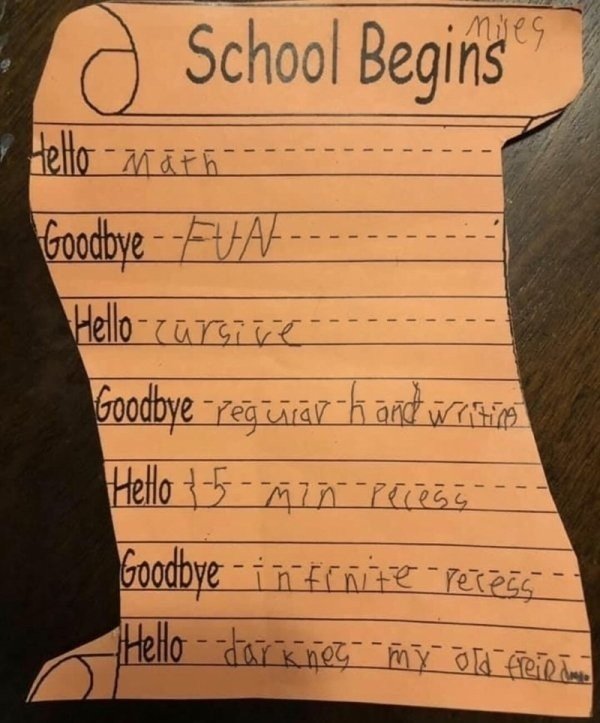 School Begins
Miles
Hello Math
Goodbye FUN
Hello cursive
Goodbye regular handwriting
Hello 15 min recess
Goodbye infinite recess
Hello darknes my old freind...